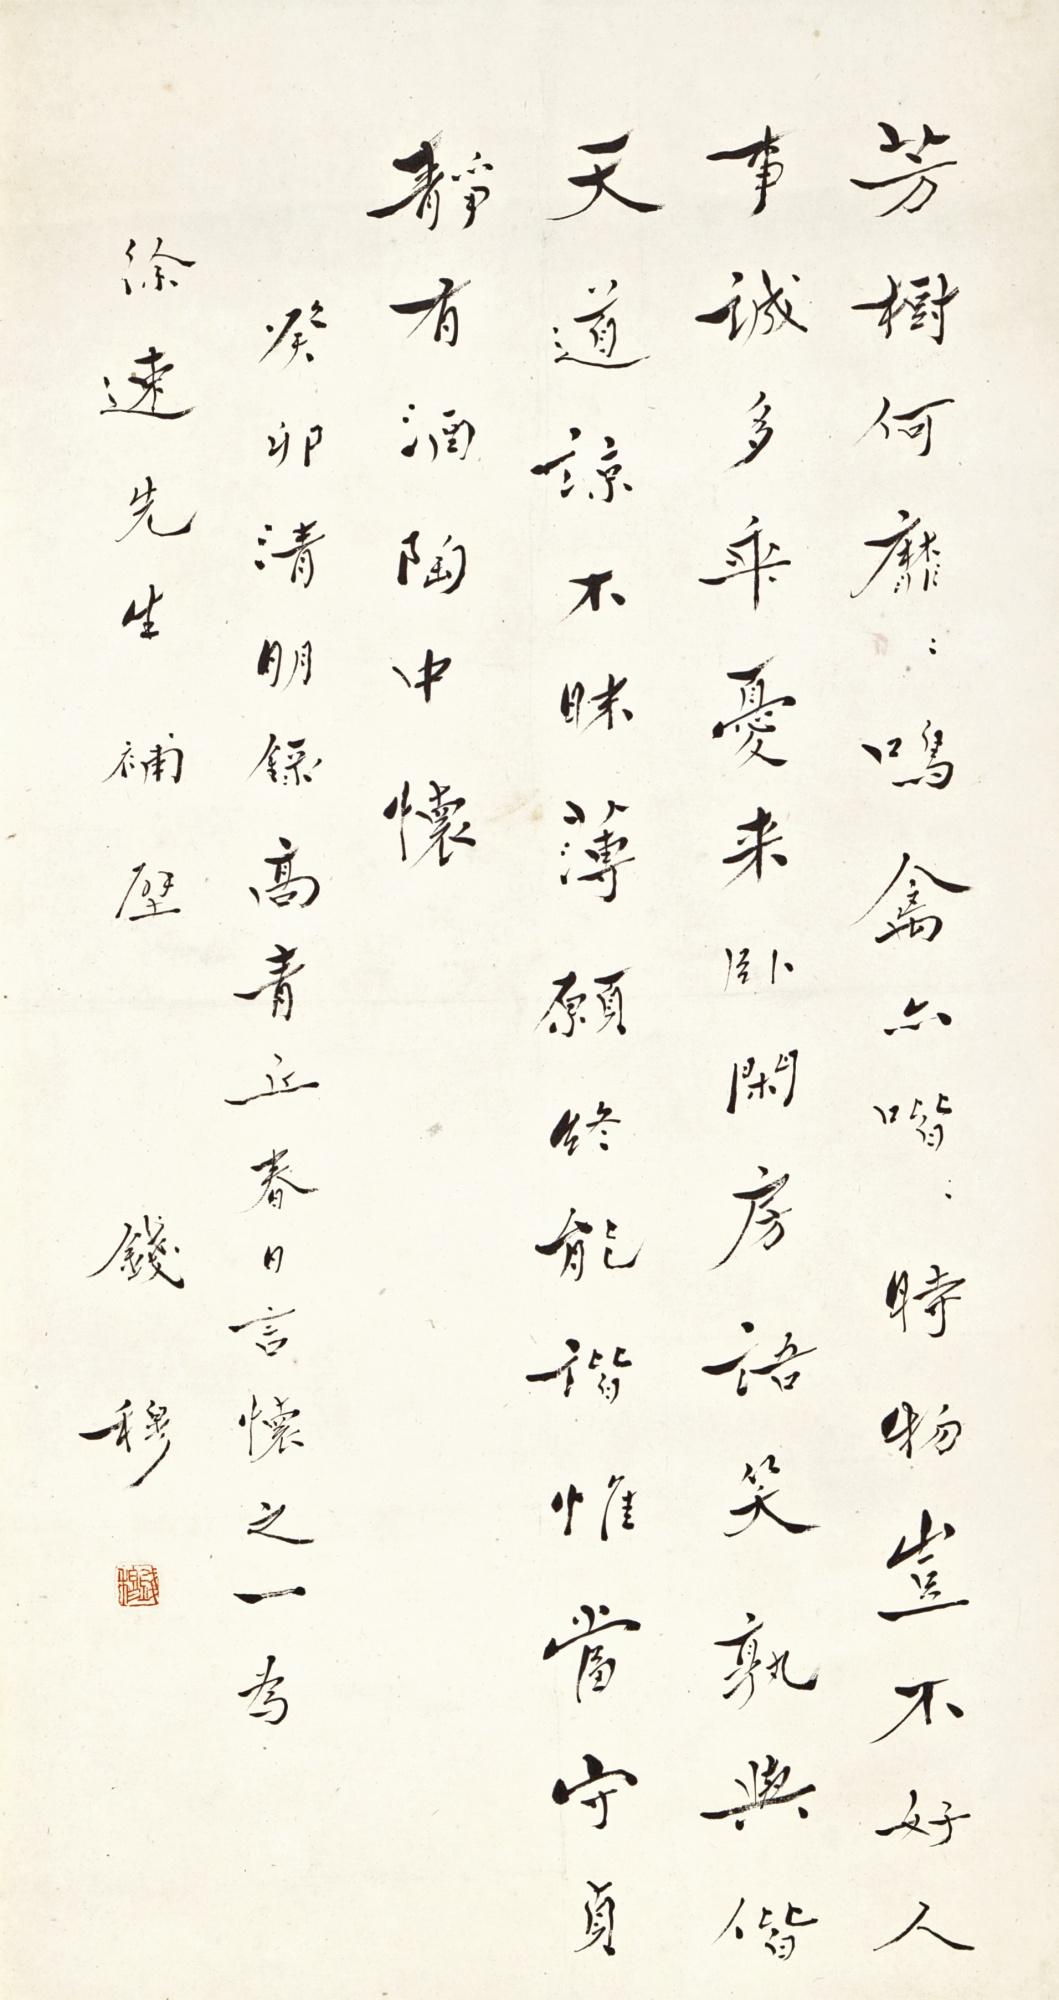 芳樹何靡〻鳴禽亦喈〻時物豈不好人
事誠多乖憂来臥閑房語笑孰與偕
天道諒不昧薄願終能諧惟當守貞
靜有酒陶中懷
癸卯清明錄高青丘春日言懷之一為
徐速先生補壁
錢穆
錢穆